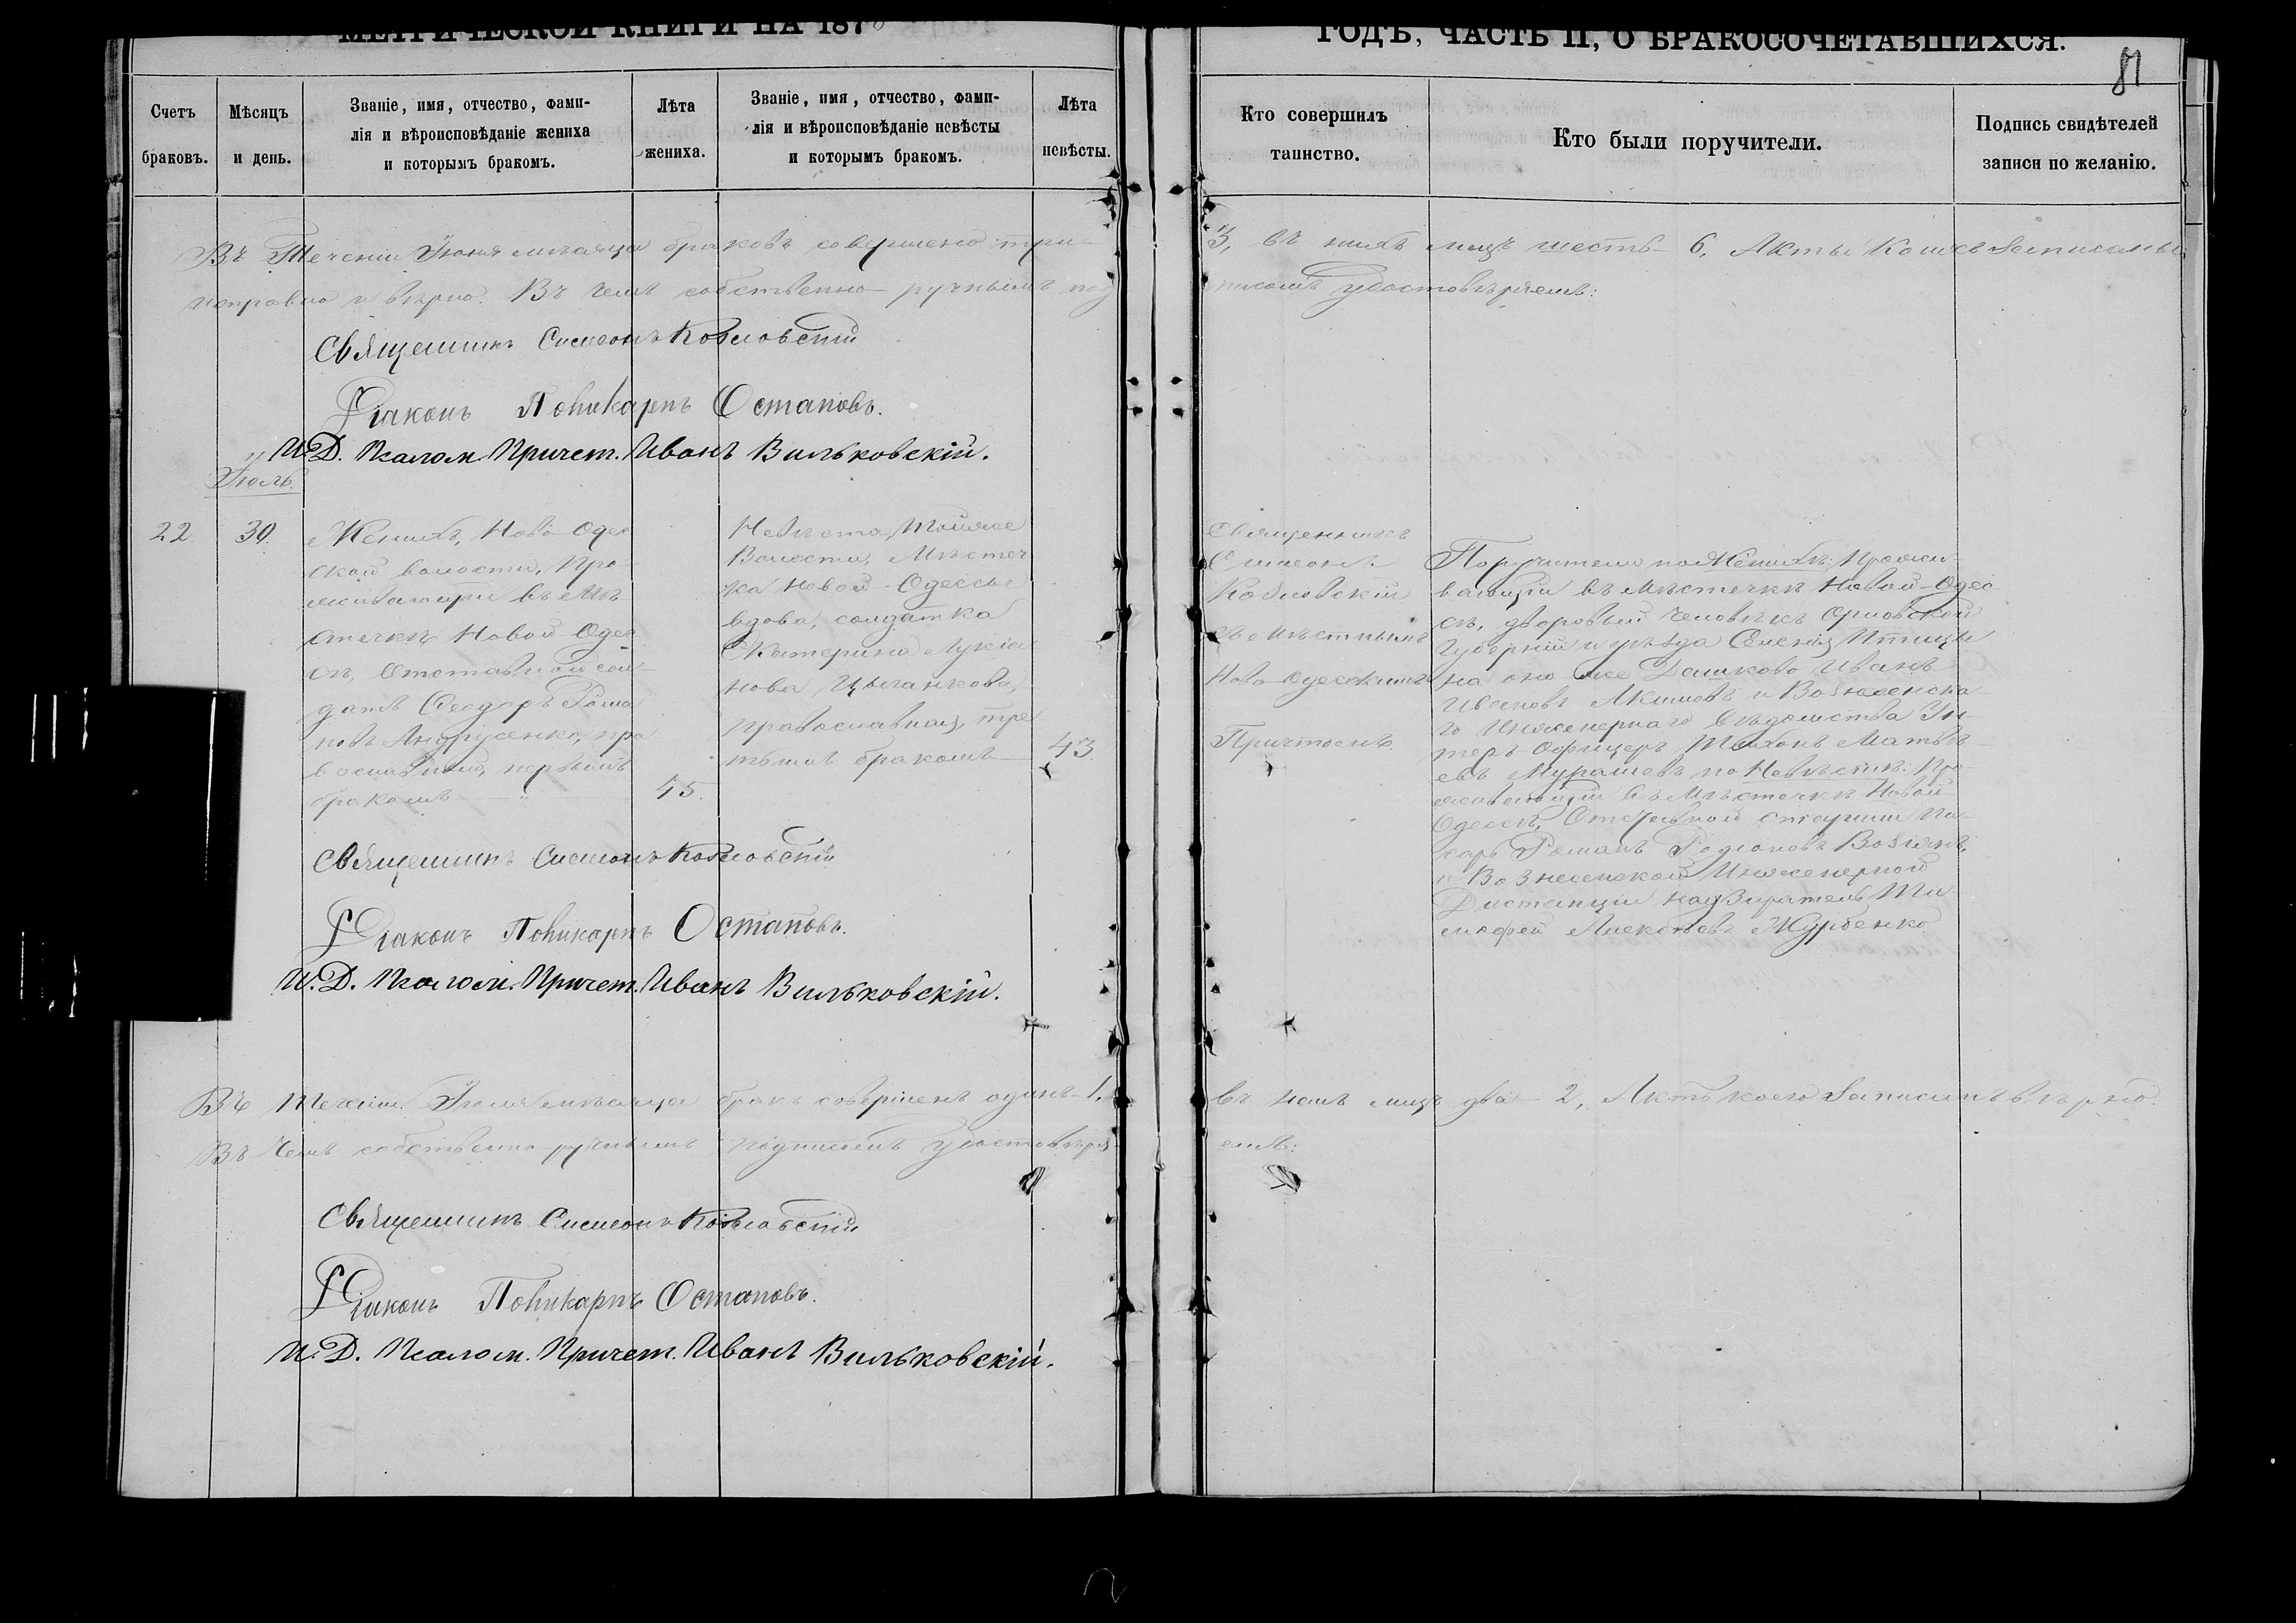 МЕТРИЧЕСКОЙ КНИГИ НА 187
ГОДЪ, ЧАСТЬ II, О БРАКОСОЧЕТАВШИХСЯ.
Счетъ
браковъ.
Мѣсяцъ
и день.
Званіе, имя, отчество, фами-
лія и вѣроисповѣданіе жениха
и которымъ бракомъ.
Лѣта
жениха.
Званіе, имя, отчество, фами-
лія и вѣроисповѣданіе невѣсты
и которымъ бракомъ.
Лѣта
невѣсты.
Кто совершилъ
таинство.
Кто были поручители.
Подпись свидѣтелей
записи по желанію.
Въ Теченіи Іюня мѣсяца браковъ совершено три- 3, въ нихъ лицъ шесть- 6, Акты Коихъ Записаны
исправно и вѣрно. Въ чемъ собственно-ручнымъ под писомъ удостовѣряемъ:
Священникъ Симеонъ Козловскій
Діаконъ Поликарпъ Остаповъ.
И.Д. Псалом. Причет. Иванъ Вильковскій.
Іюль.
22.
30.
Женихъ, Ново-Одес
ской волости, Про-
живающій въ Мѣ
стечкѣ Новой Одес
сѣ, Отставной сол-
датъ Ѳеодоръ Рома
новъ Андрусенко, пра
вославный, первымъ
бракомъ
45.
Невѣста, Тойже
Волости, Мѣстеч
ка Новой-Одессы
вдова, солдатка
Екатерина Лукіа
нова Цыганкова,
православная, тре
тьимъ бракомъ
43
Священникъ
Симеонъ
Козловскій
съ мѣстнымъ
Ново-Одесскимъ
Причтомъ.
Поручители по Женихѣ: Прожи-
вающіи въ Мѣстечкѣ Новой-Одес
сѣ, дворовый человѣкъ Орловской
Губерніи и уѣзда
Иванъ
Ивановъ Акимовъ и Вознесенска-
го Инженернаго Вѣдомства Ун-
теръ-Офицеръ Тихонъ Матвѣ
евъ Мурашевъ по Невѣстѣ: Про
живающіи въ Мѣстечкѣ Новой-
Одессѣ, старшій Пи-
сарь Романъ Родіоновъ
и Вознесенской Инженерной
Дистанціи надзиратель Ти
мофей Алексѣевъ Журбенко
Священникъ Симеонъ Козловскій
Діаконъ Поликарпъ Остаповъ.
И.Д. Псалом. Причет. Иванъ Вильковскій.
Въ Теченіи Іюля мѣсяца бракъ совершенъ одинъ-1, въ немъ лицъ два- 2, Актъ коего Записанъ вѣрно.
Въ Чемъ собственно ручнымъ подписомъ удостовѣря- емъ:
Священникъ Симеонъ Козловскій
Діаконъ Поликарпъ Остаповъ.
И.Д. Псалом. Причет. Иванъ Вильковскій.